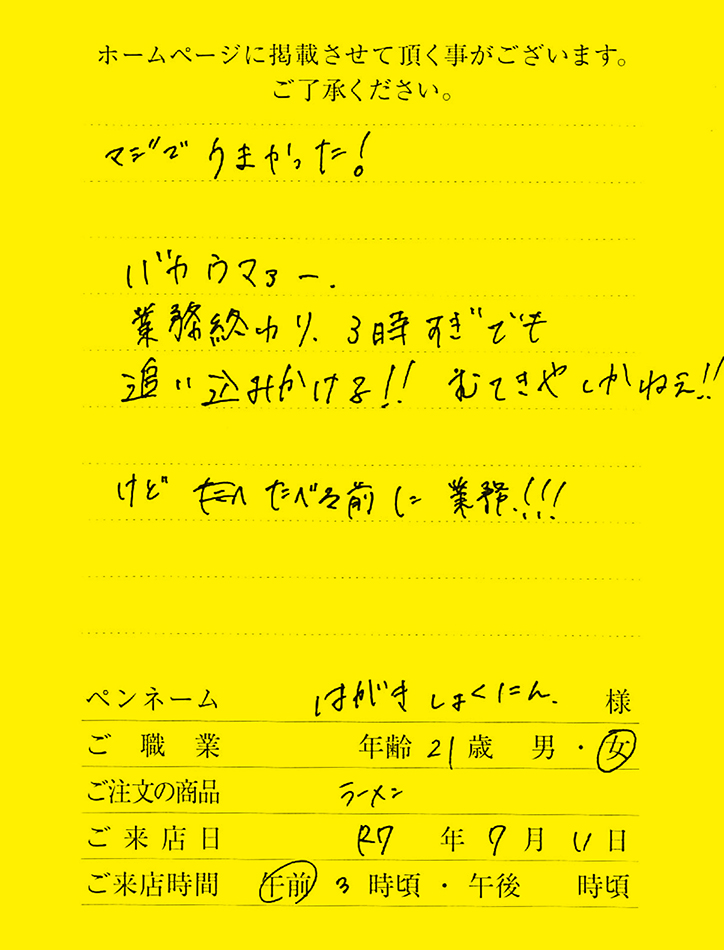 ホームページに掲載させて頂く事がございます。
ご了承ください。
マジでうまかった!
バカウマァー.
業務終わり、3時すぎでも
追い込みかける!! むてきやしかねぇ!!
けど たべる前に 業務!!!
ペンネーム はがきしょくにん. 様
ご職業 年齢 21 歳 男・女
ご注文の商品 ラーメン
ご来店日 R7 年 9 月 11 日
ご来店時間 午前 3 時頃・午後 時頃